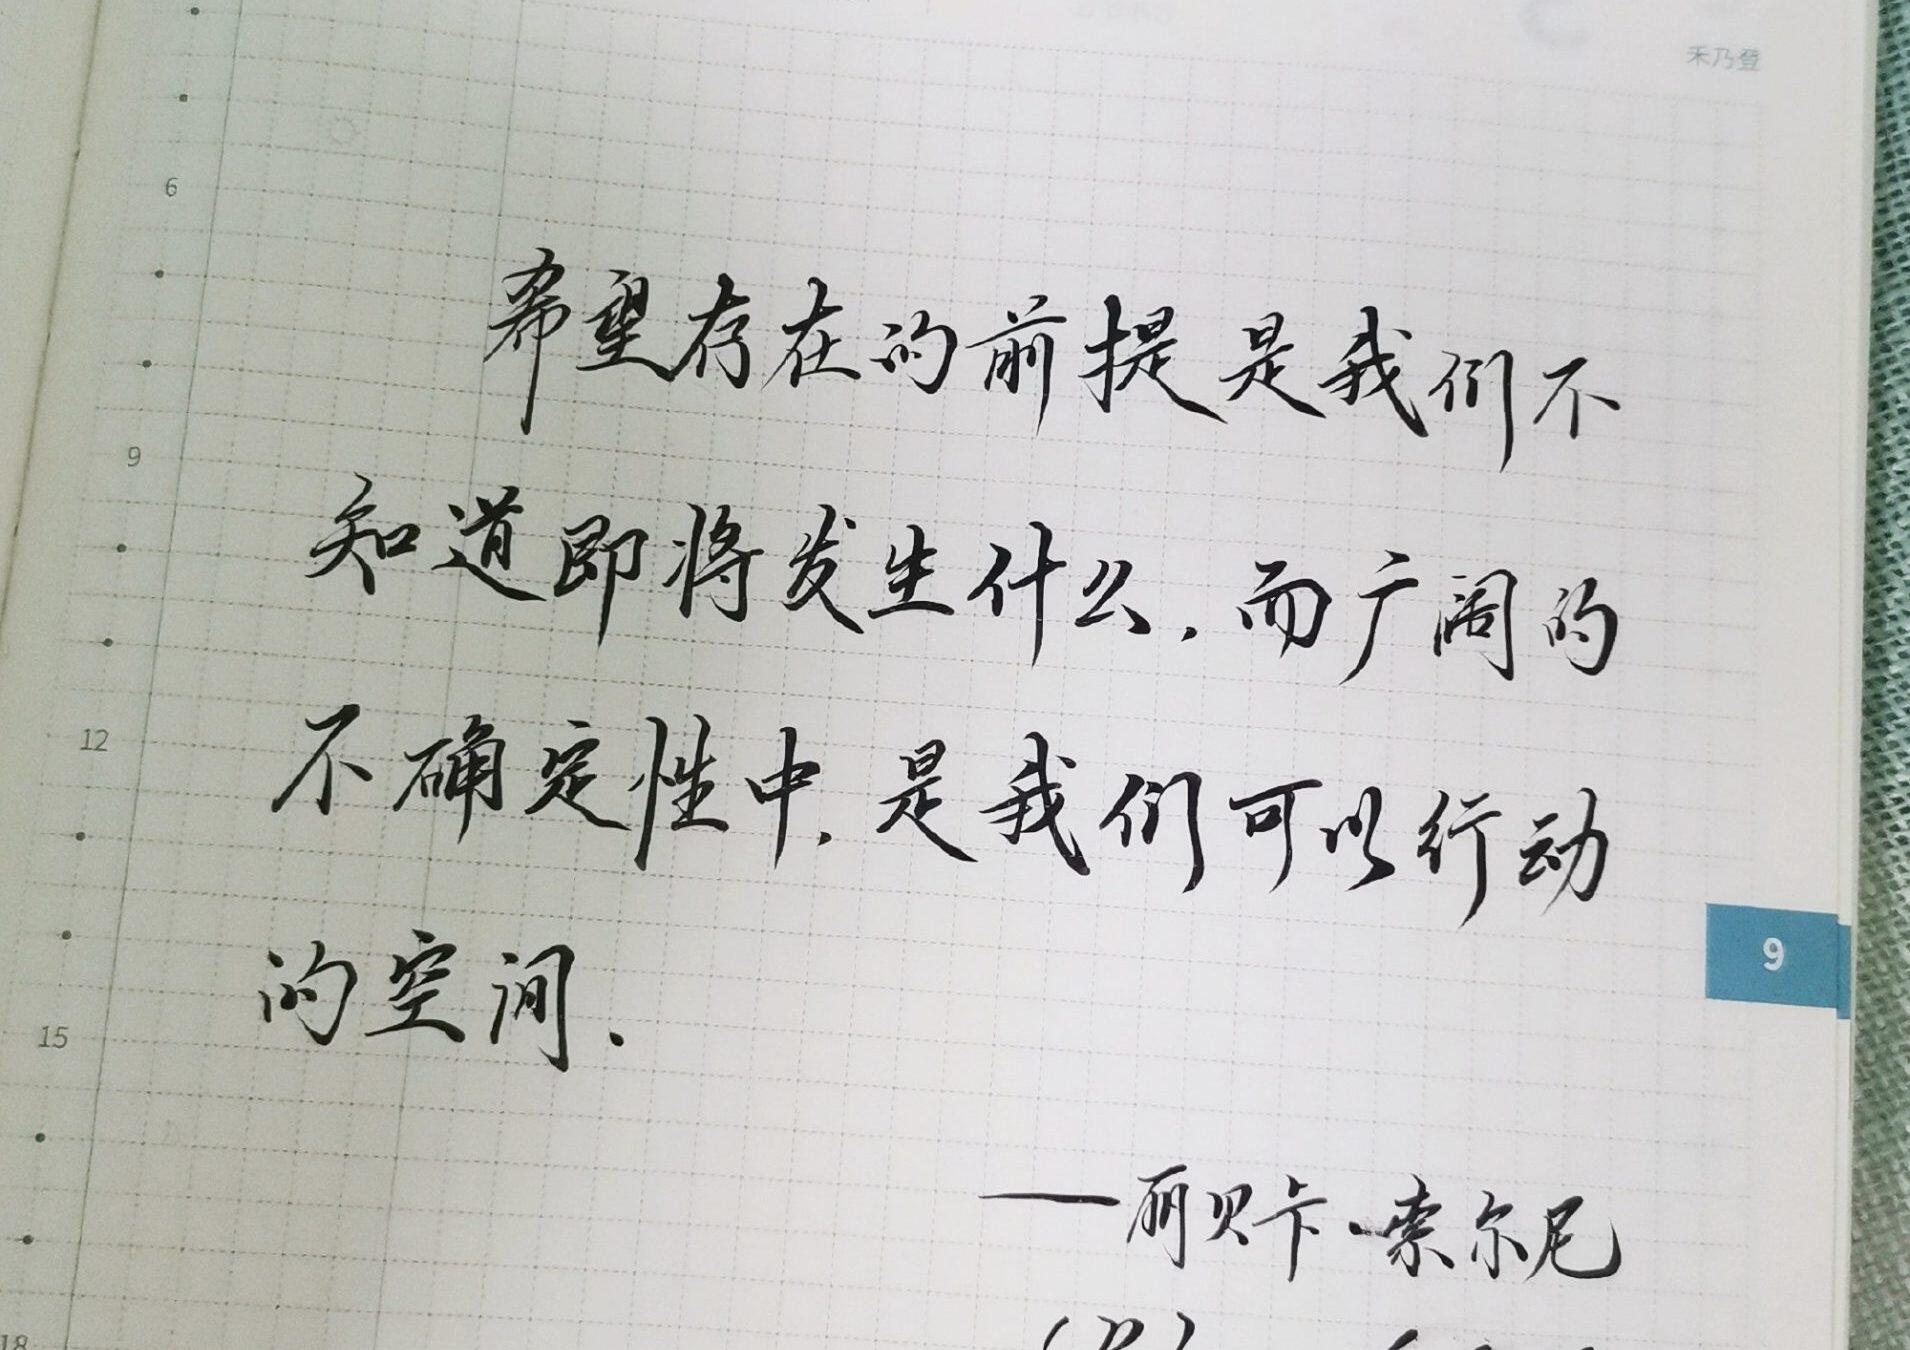 禾乃登
6
希望存在的前提是我们不
9
知道即将发生什么.而广阔的
12
不确定性中.是我们可以行动
9
的空间.
15
——丽贝卡·索尔尼
18